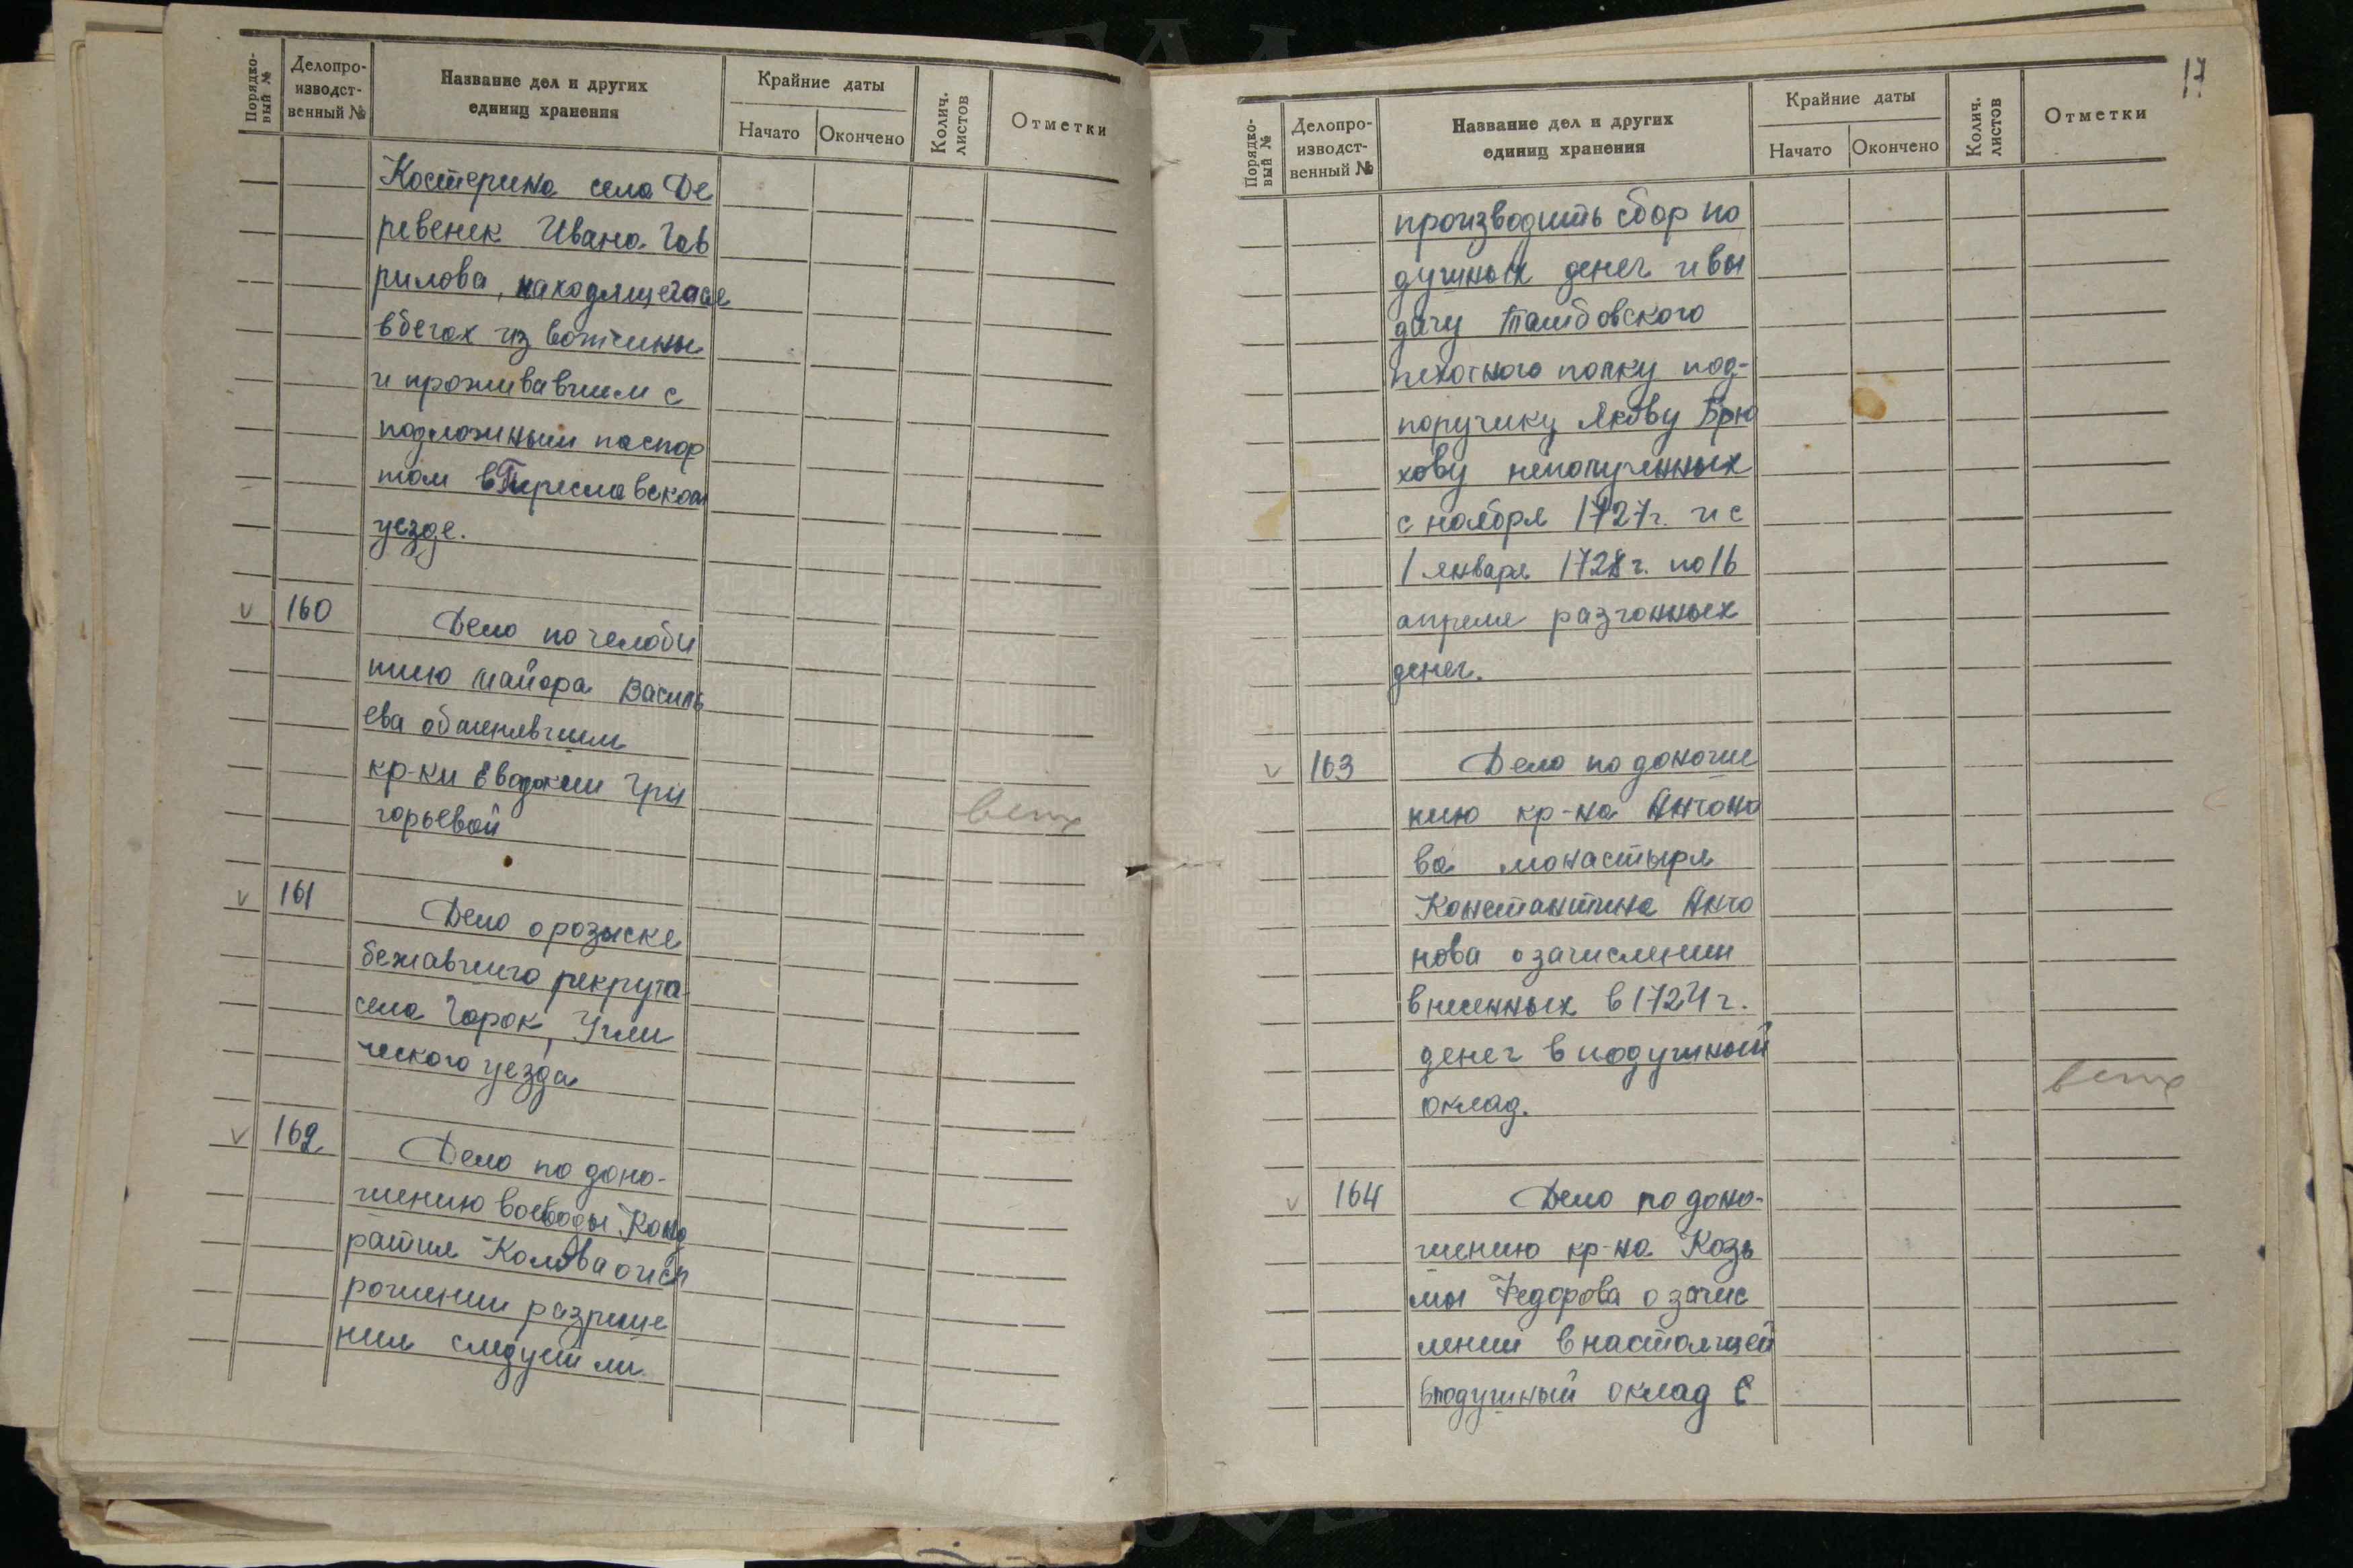 Порядко-
вый №
Делопро-
изводст-
венный №
Название дел и других
единиц хранения
Крайние даты
Начато
Окончено
Колич.
листов
Отметки
Костерина села Де
ревенек Ивана Гав
рилова, находящегося
в бегах из вотчины
и проживавшем с
подложным паспор
том в Переславском
уезде.
v 160 Дело по челоби
тию майора Василь
ева об
кр-ки Евдокии Гри
горьевой
ветх
v 161 Дело о розыске
бежавшего рекрута
села Горок, Угли
ческого уезда
v 162 Дело по доно-
шению воеводы Конд
ратия о исп
рошении разреше
ния следует ли
17
Порядко-
вый №
Делопро-
изводст-
венный №
Название дел и других
единиц хранения
Крайние даты
Начато
Окончено
Колич.
листов
Отметки
производить сбор по
душных денег и вы
дачу Тамбовского
пехотного полку под-
поручику Якову Брю
хову неполученных
с ноября 1727 г. и с
1 января 1728 г. по 16
апреля разгонных
денег.
v 163 Дело по доноше
нию кр-на Антоно
ва монастыря
Константина Анто
нова о зачислении
внесенных в 1724 г.
денег в подушный
оклад.
ветх
v 164 Дело по доно-
шению кр-на Козь
мы Федорова о зачис
лении в настоящей
подушный оклад с